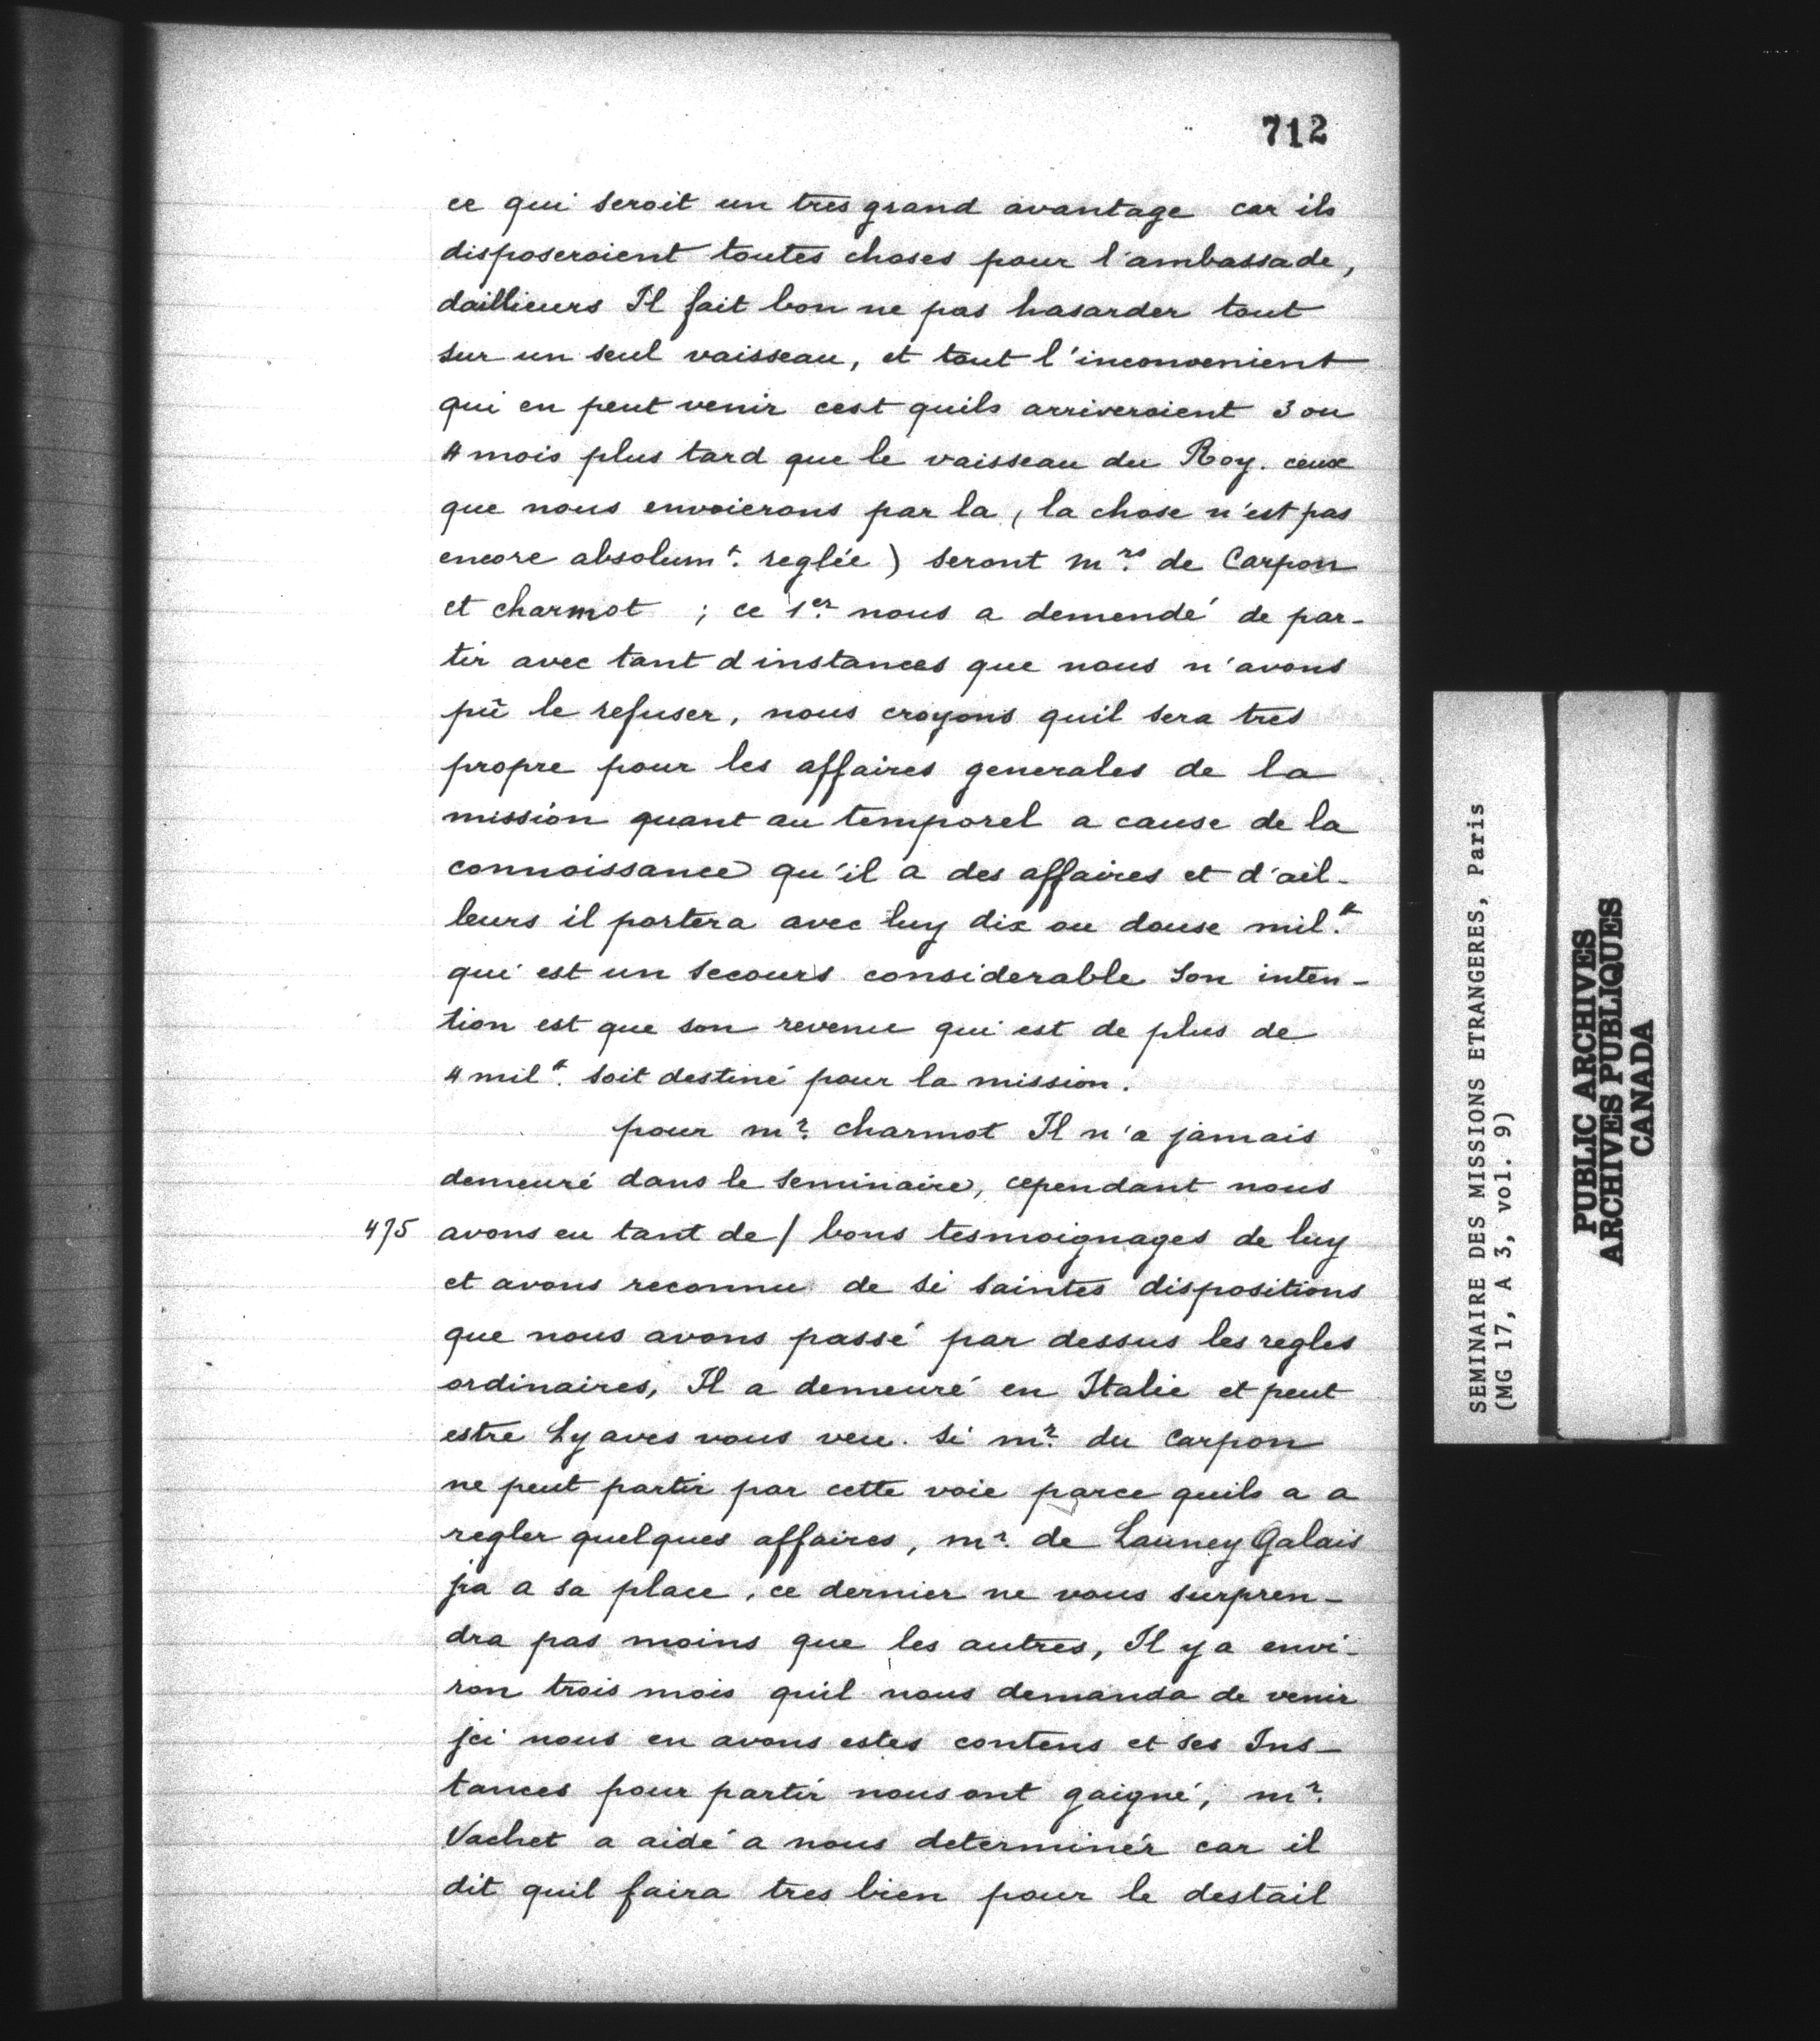 712
ce qui seroit un tres grand avantage car ils
disposeroient toutes choses pour l'ambassade,
daillieurs Il fait bon ne pas hasarder tout
sur un seul vaisseau, et tout l'inconvenient
qui en peut venir cest quils arriveroient 3 ou
4 mois plus tard que le vaisseau du Roy. ceux
que nous envoierons par la, (la chose n'est pas
encore absolumt. reglée) seront mrs. de Carpon
et charmot ; ce 1er. nous a demendé de par-
tir avec tant d instances que nous n'avons
pû le refuser, nous croyons quil sera tres
propre pour les affaires generales de la
mission quant au temporel a cause de la
connoissance qu'il a des affaires et d'ail-
leurs il portera avec luy dix ou douse mil.tt
qui est un secours considerable son inten-
tion est que son revenu qui est de plus de
4 miltt. soit destiné pour la mission.
pour mr. charmot Il n'a jamais
demeuré dans le seminaire, cependant nous
475 avons eu tant de / bons tesmoignages de luy
et avons reconnu de si saintes dispositions
que nous avons passé par dessus les regles
ordinaires, Il a demeuré en Italie et peut
estre Ly aves vous veu. Si mr. du Carpon
ne peut partir par cette voie parce quils a a
regler quelques affaires, mr. de Launey Galais
jra a sa place, ce dernier ne vous surpren-
dra pas moins que les autres, Il y a envi-
ron trois mois quil nous demanda de venir
jci nous en avons estes contens et ses Ins-
tances pour partir nous ont gaigné, mr.
Vachet a aidé a nous determinér car il
dit quil faira tres bien pour le destail
SEMINAIRE DES MISSIONS ETRANGERES, Paris
(MG 17, A 3, vol. 9)
PUBLIC ARCHIVES
ARCHIVES PUBLIQUES
CANADA